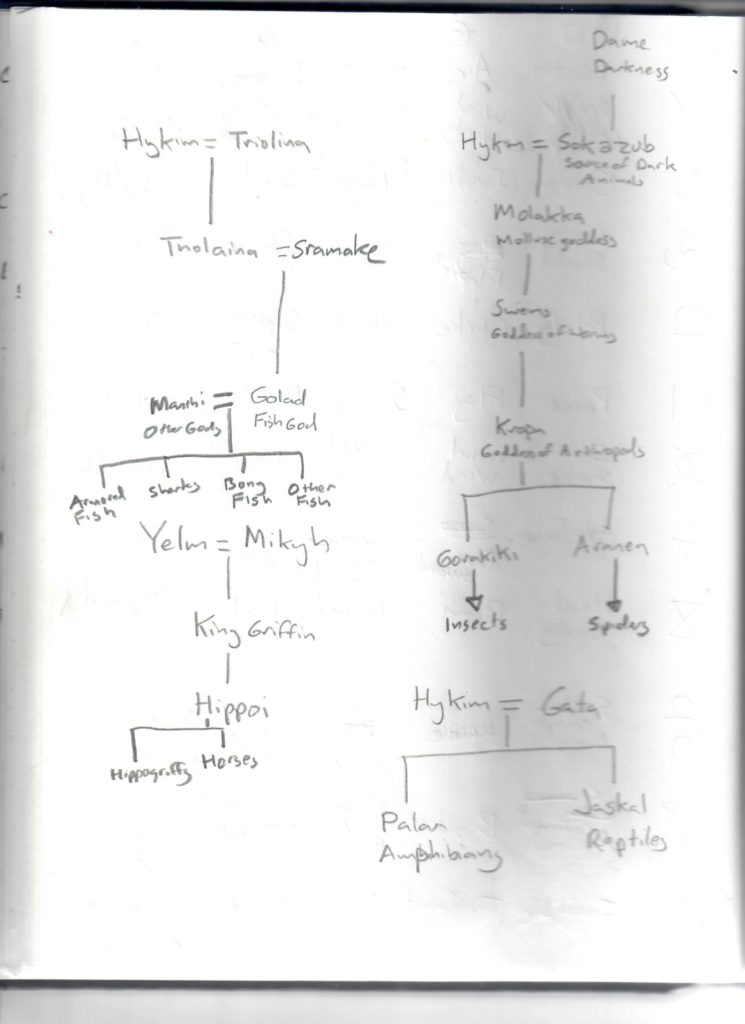 Hykim = Triolina
Tholaina = Sramake
Manthi = Golad
Other Gods
Fish God
Armored
Fish
Sharks
Bony
Fish
Other
Fish
Yelm = Mikyh
King Griffin
Hippoi
Hippogriffs
Horses
Dame
Darkness
Hykim = Sokazub
Source of Dark
Animals
Molakka
Mollusc goddess
Swems
Goddess of Worms
Krapn
Goddess of Arthropods
Gorakiki
Aranen
Insects
Spiders
Hykim = Gata
Palan
Amphibians
Jaskal
Reptiles